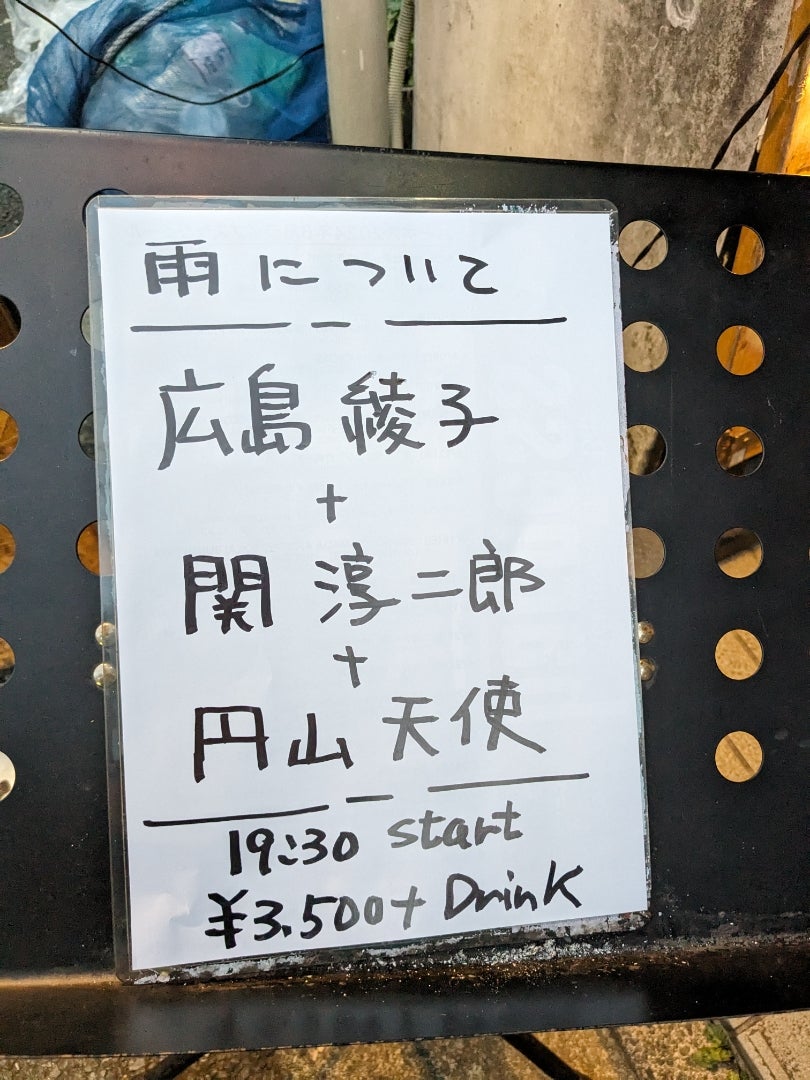 雨について
広島 綾子
+
関 淳二郎
+
円山 天使
19:30 start
¥3.500+ Drink